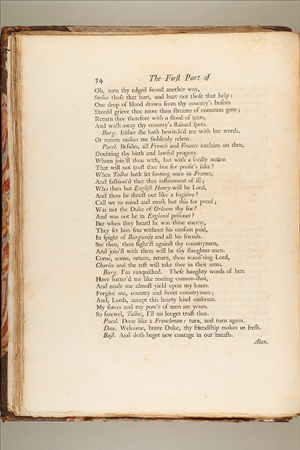 54 The First Part of
Oh, turn thy edged sword another way,
Strike those that hurt, and hurt not those that help:
One drop of blood drawn from thy country's bosom
Should grieve thee more than streams of common gore;
Return thee therefore with a flood of tears,
And wash away thy country's stained spots.
Burg. Either she hath bewitch'd me with her words,
Or nature makes me suddenly relent.
Pucel. Besides, all French and France exclaim on thee,
Doubting thy birth and lawful progeny.
Whom join'st thou with, but with a lordly nation
That will not trust thee but for profit's sake?
When Talbot hath set footing once in France,
And fashion'd thee that instrument of ill;
Who then but English Henry will be Lord,
And thou be thrust out like a fugitive?
Call we to mind and mark but this for proof;
Was not the Duke of Orleans thy foe?
And was not he in England prisoner?
But when they heard he was thine enemy,
They set him free without his ransom paid,
In spight of Burgundy and all his friends.
See then, thou fight'st against thy countrymen,
And join'st with them will be thy slaughter-men.
Come, come, return, return, thou wand'ring Lord,
Charles and the rest will take thee in their arms.
Burg. I'm vanquished. These haughty words of hers
Have batter'd me like roaring cannon-shot,
And made me almost yield upon my knees.
Forgive me, country and sweet countrymen;
And, Lords, accept this hearty kind embrace.
My forces and my pow'r of men are yours.
So farewel, Talbot, I'll no longer trust thee.
Pucel. Done like a Frenchman: turn, and turn again.
Dau. Welcome, brave Duke, thy friendship makes us fresh.
Bast. And doth beget new courage in our breasts.
Alan.